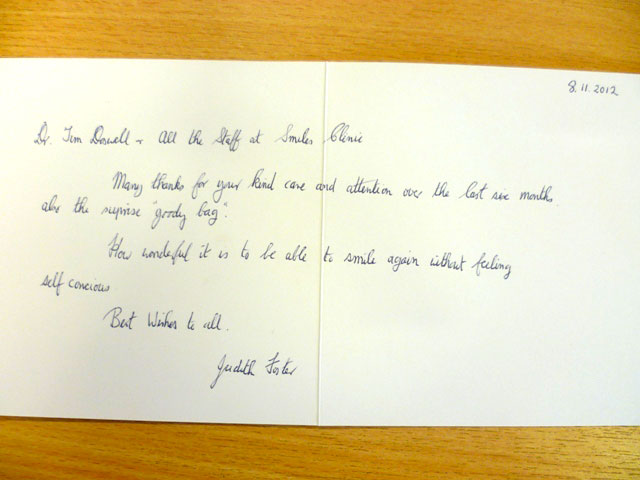 8.11.2012
Dr. Tim Doswell + All the Staff at Smiles Clinic
Many thanks for your kind care and attention over the last six months
also the suprise "goody bag".
How wonderful it is to be able to smile again without feeling
self concious
Best Wishes to all.
Judith Foster